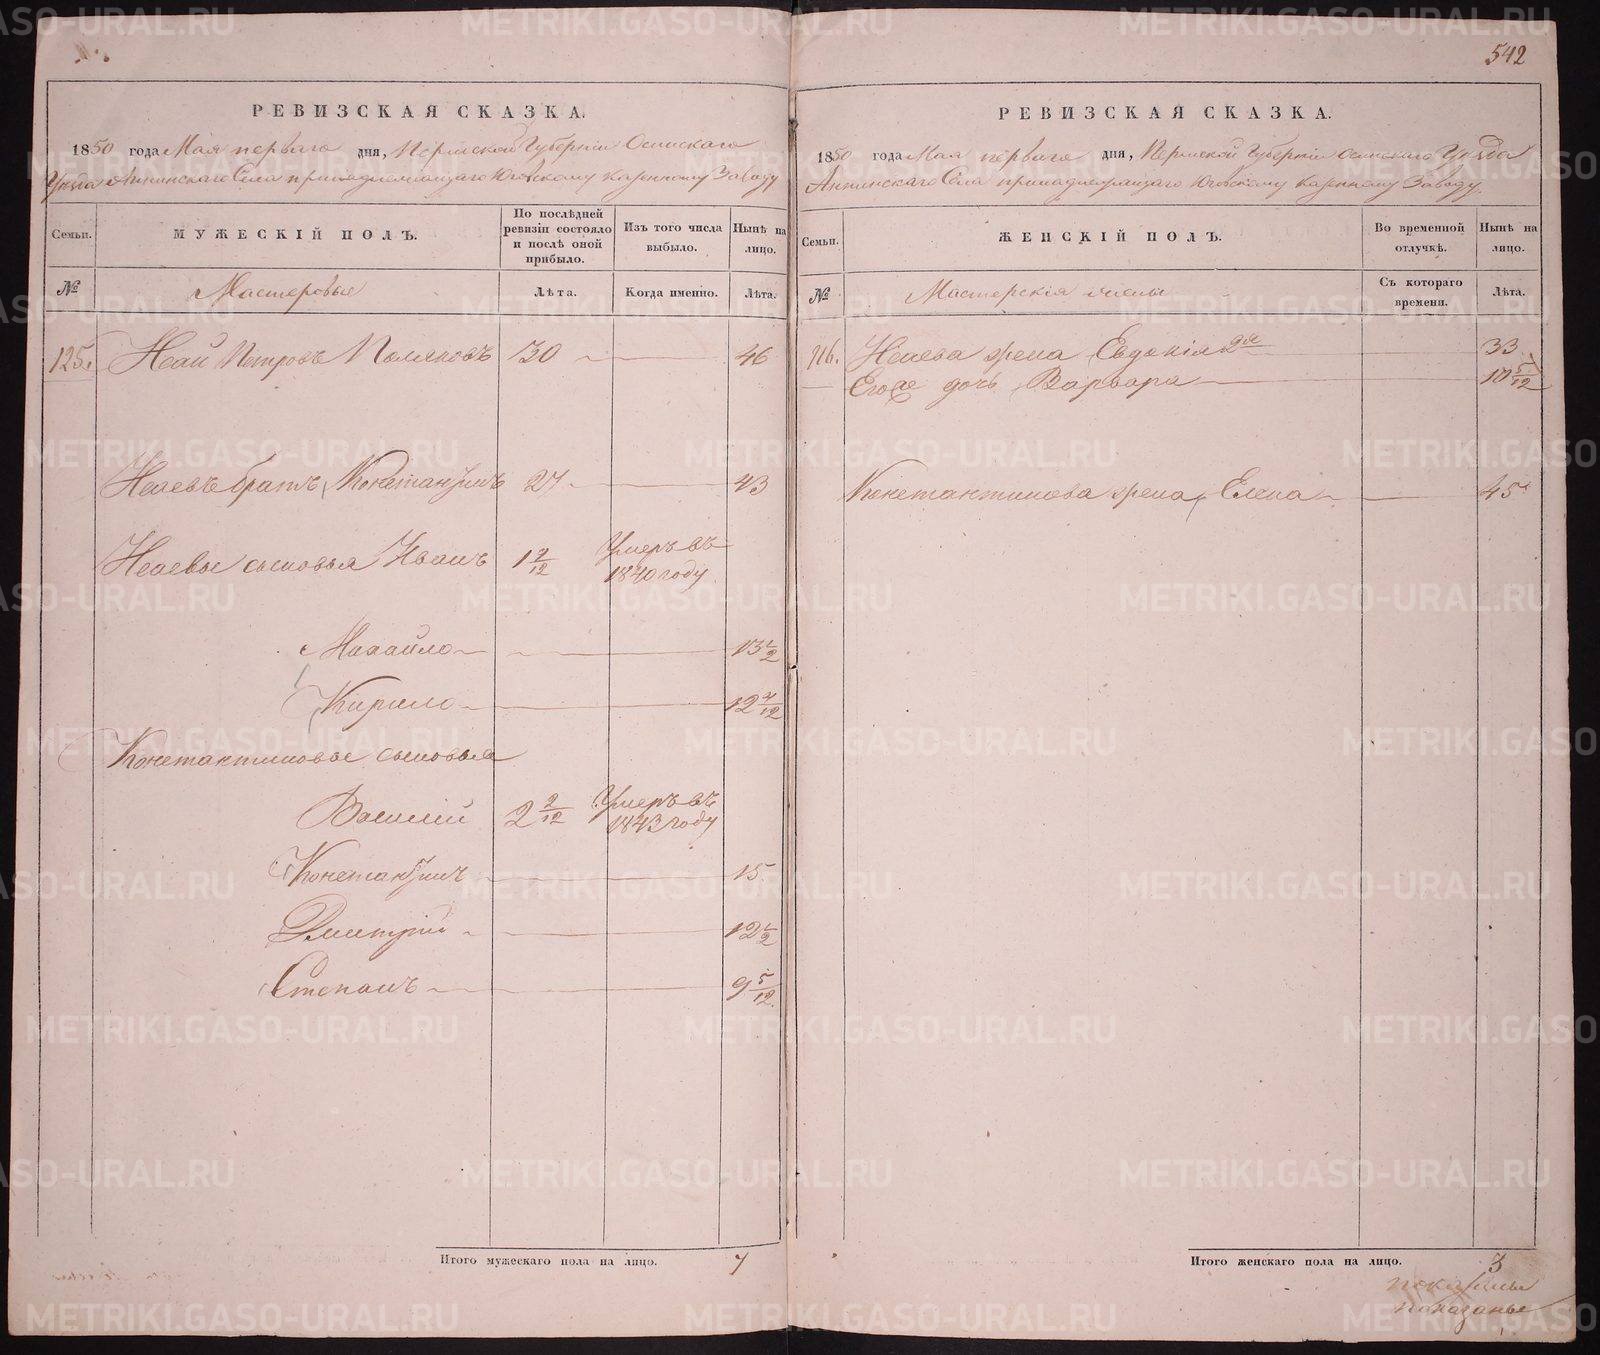 542
РЕВИЗСКАЯ СКАЗКА.
1850 года Мая перваго дня, Пермской Губерніи Осинскаго
Уѣзда Аннинскаго Села принадлежащаго Юговскому Казенному Заводу
Семьи. МУЖЕСКІЙ ПОЛЪ. По послѣдней ревизіи состояло и послѣ оной прибыло. Изъ того числа выбыло. Нынѣ на лицо.
№ Мастеровые Лѣта. Когда именно. Лѣта.
125. Исай Петровъ Поляковъ 30 46
Исаевъ братъ, Константинъ 27 43
Исаевы сыновья Иванъ 1 2/12 Умеръ въ 1840 году
Михайло 13 1/2
Кирило 12
Константиновы сыновья
Василій 2 2/12 Умеръ въ 1843 году
Константинъ 15
Дмитрій 12 1/2
Степанъ 9 5/12
Итого мужескаго пола на лицо. 7
РЕВИЗСКАЯ СКАЗКА.
1850 года Мая перваго дня, Пермской Губерніи Осинскаго Уѣзда
Аннинскаго Села принадлежащаго Юговскому Казенному Заводу.
Семьи. ЖЕНСКІЙ ПОЛЪ. Во временной отлучкѣ. Нынѣ на лицо.
№ Мастерскія жены Съ котораго времени. Лѣта.
Исаева жена Евдокія 33
Его же дочь Варвара 10 5/12
Константинова жена, Елена 45
Итого женскаго пола на лицо. 3
METRIKI.GASO-URAL.RU